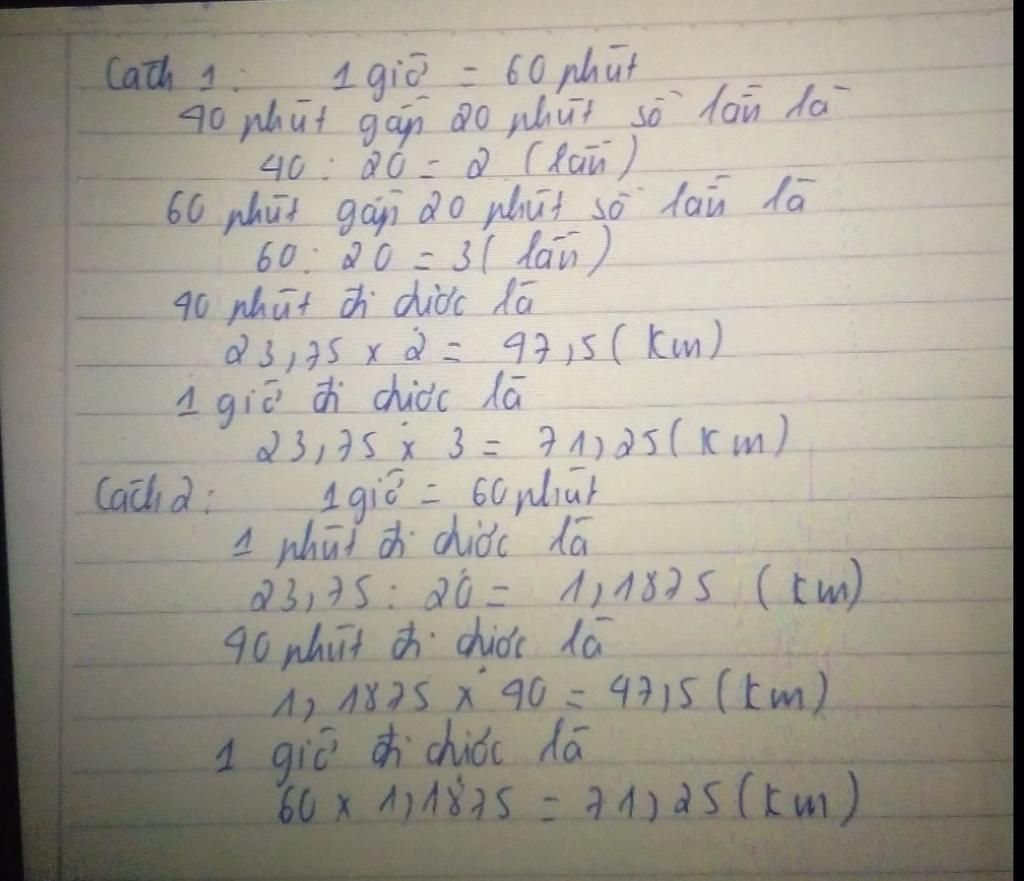 Cách 1: 1 giờ = 60 phút
40 phút gấp 20 phút số lần là
40 : 20 = 2 (lần)
60 phút gấp 20 phút số lần là
60 : 20 = 3 ( lần )
40 phút đi được là
23,75 x 2 = 47,5 ( km )
1 giờ đi được là
23,75 x 3 = 71,25 ( km )
Cách 2 : 1 giờ = 60 phút
1 phút đi được là
23,75 : 20 = 1,1875 ( km )
40 phút đi được là
1,1875 x 40 = 47,5 ( km )
1 giờ đi được là
60 x 1,1875 = 71,25 ( km )